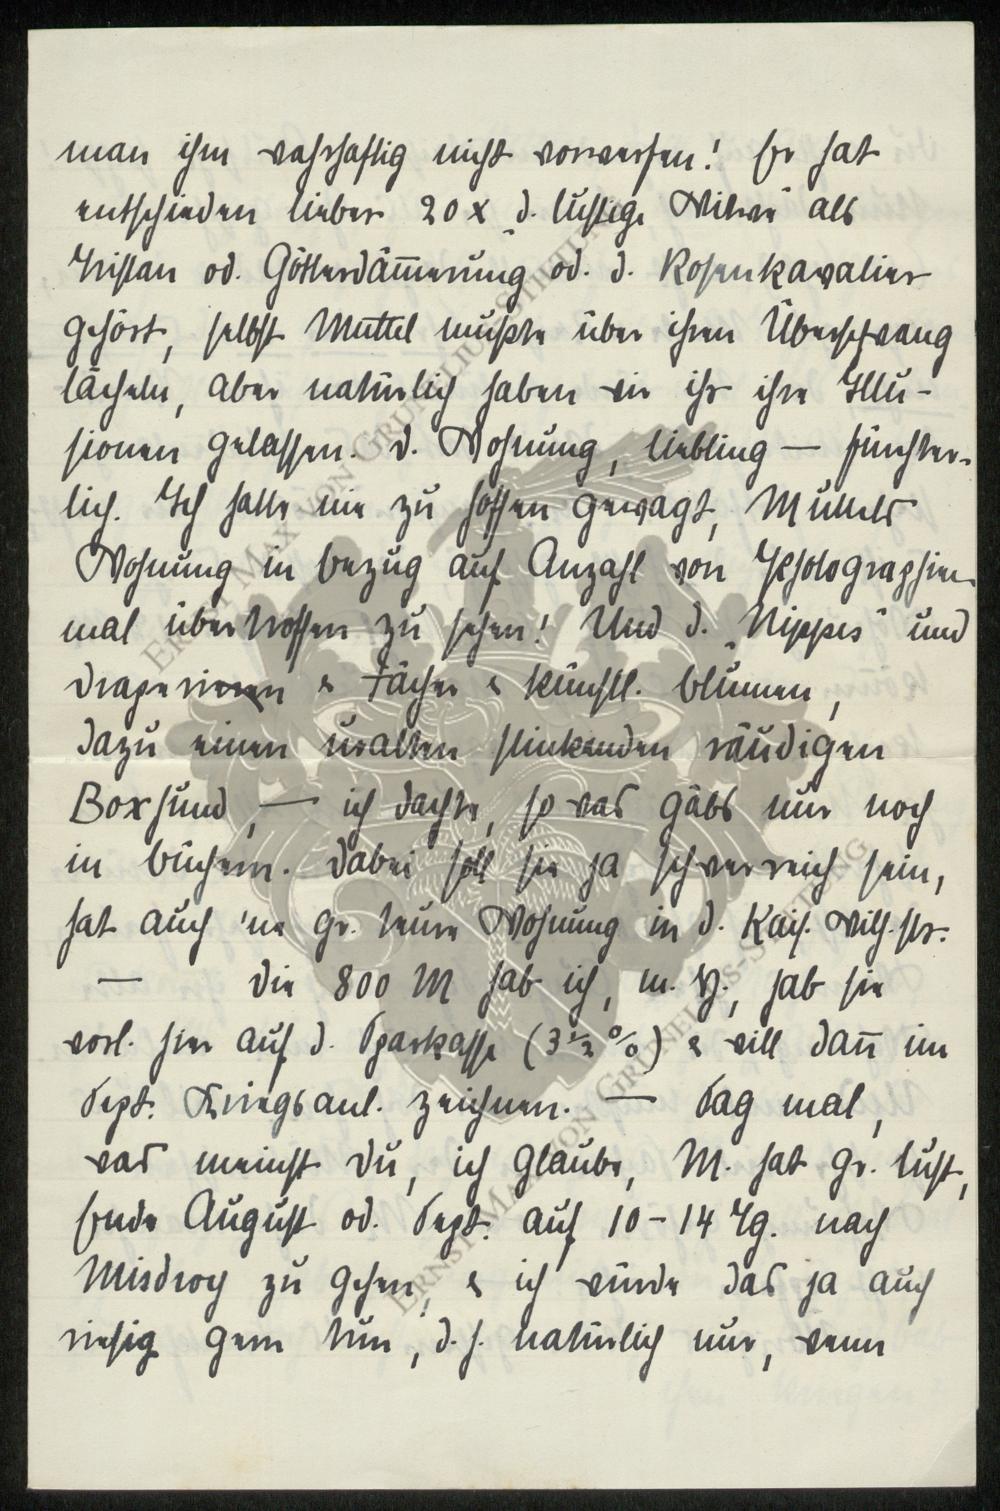 man ihm wahrhaftig nicht vorwerfen! Er hat
entschieden lieber 20 x „d. lustige Witwe" als
Tristan od. Götterdäm̅erung od. d. Rosenkavalier
gehört, selbst Muttel mußte über ihren Überschwang
lächeln, aber natürlich haben wir ihr ihre Illu-
sionen gelassen. D. Wohnung, Liebling — fürchter-
lich. Ich hatte nie zu hoffen gewagt, Muttels
Wohnung in bezug auf Anzahl von Photographien
mal übertroffen zu sehen! Und d. „Nippes" und
Draperieren & Fächer & künstl. Blumen,
dazu einen uralten stinkenden räudigen
Boxhund, — ich dachte, so was gäbs nur noch
in Büchern. Dabei soll sie ja schwerreich sein,
hat auch 'ne gr. teure Wohnung in d. Kais. Wilh. str.
— Die 800 M hab ich, m. H., hab sie
vorl. hier auf d. Sparkasse (3 ½ %) & will dan̅ im
Sept. Kriegsanl. zeichnen. — Sag mal,
was meinst Du, ich glaube, M. hat gr. Lust,
Ende August od. Sept. auf 10 - 14 Tg. nach
Misdroy zu gehen, & ich würde das ja auch
riesig gern tun, d. h. natürlich nur, wenn
ERNST MAX VON GRUNELIUS-STIFTUNG
ERNST MAX VON GRUNELIUS-STIFTUNG